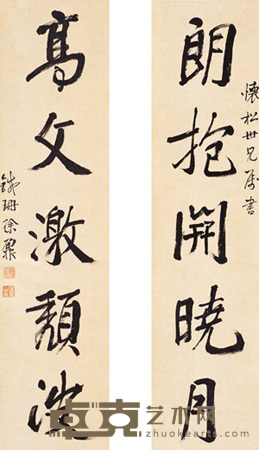 懷松世兄屬書
朗抱開曉月
高文激頹波
銕珊徐
卓克艺术网
zhuokearts.com